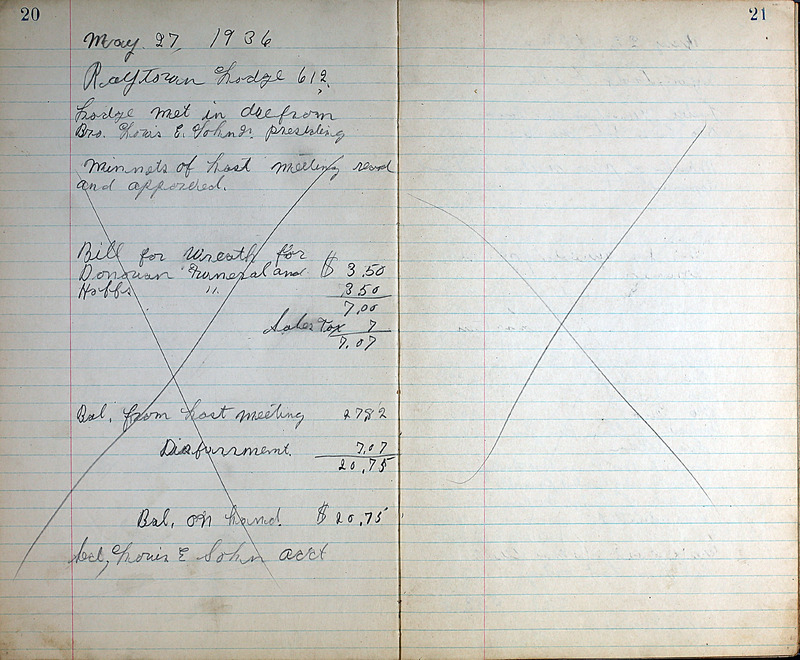 20
May 27, 1936
Raytown Lodge 612.
Lodge met in due from
Bro. Louis E. Sohn Jr. presiding
Minnets of Last meeting read
and apporved.
Bill for Wreath for
Donovan Funeral and $ 3.50
Hoffs " 3.50
7.00
Sales Tax 7
7.07
Bal. from Last meeting 27.82
Disburrsment. 7.07
20.75
Bal. on hand. $ 20.75
Louis E Sohn
21